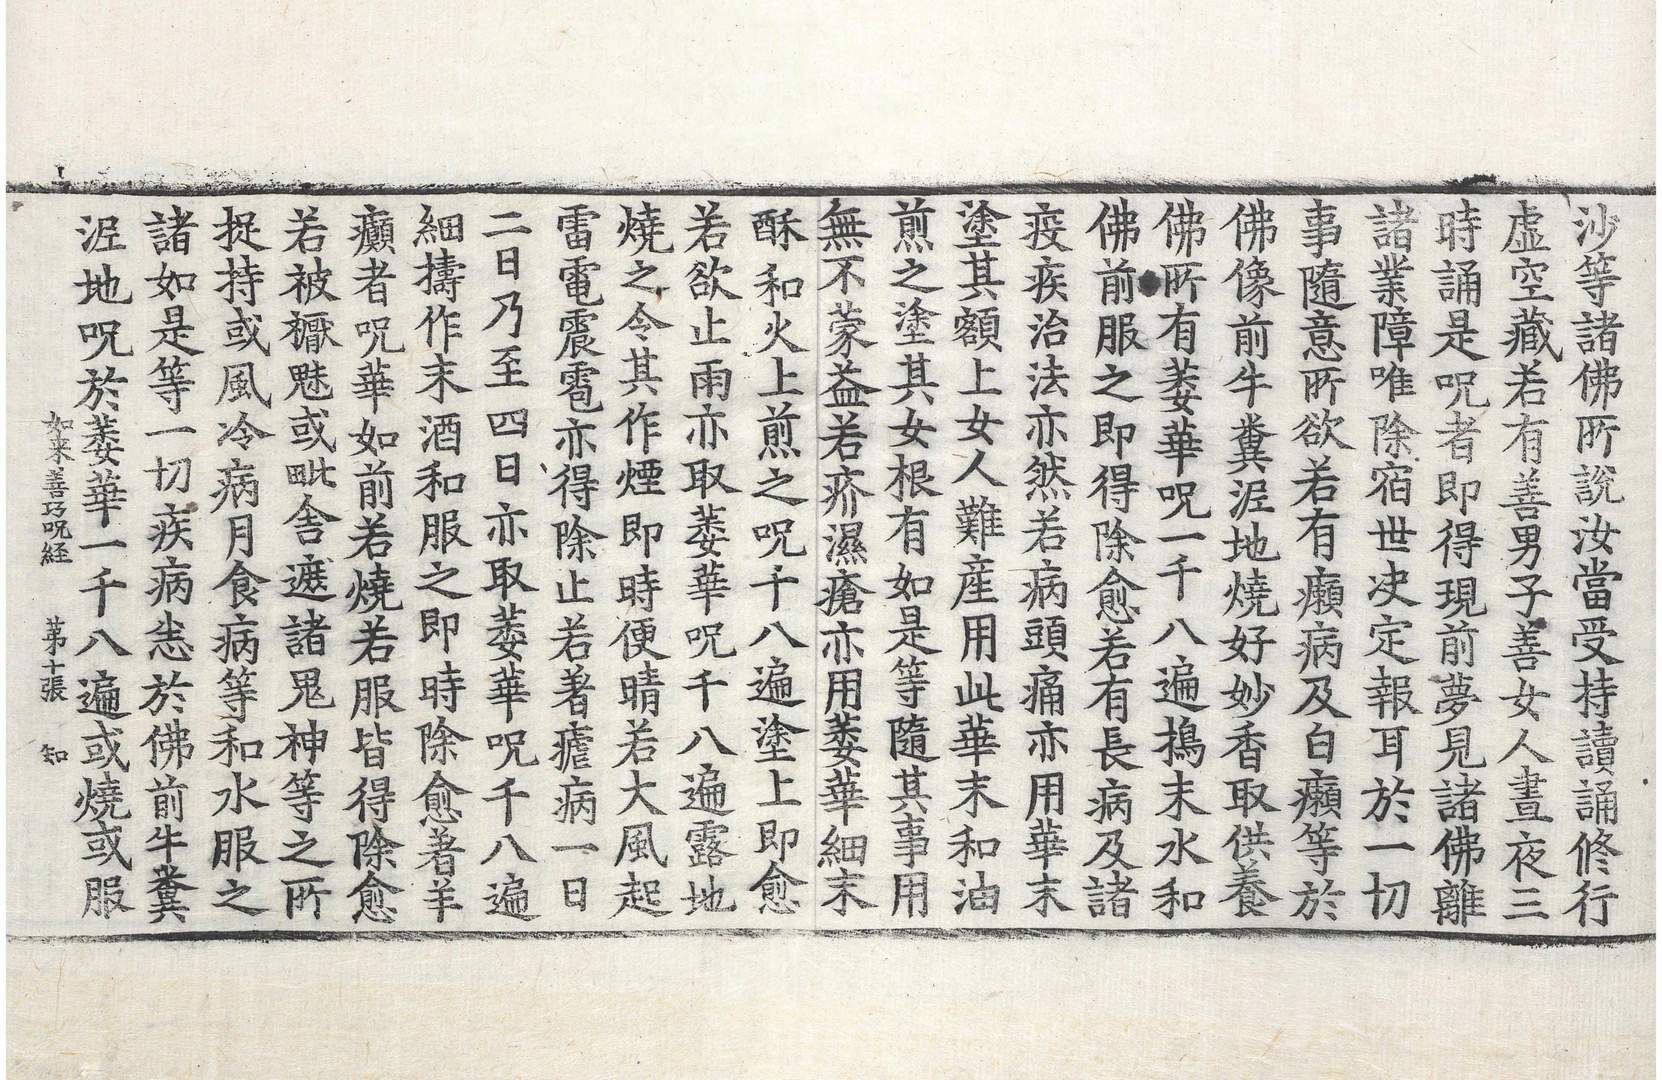 沙等諸佛所說汝當受持讀誦修行
虛空藏若有善男子善女人晝夜三
時誦是呪者即得現前夢見諸佛離
諸業障唯除宿世決定報耳於一切
事隨意所欲若有癩病及白癩等於
佛像前牛糞泥地燒好妙香取供養
佛所有蔞華呪一千八遍擣末水和
佛前服之即得除愈若有長病及諸
疫疾治法亦然若病頭痛亦用華末
塗其額上女人難產用此華末和油
煎之塗其女根有如是等隨其事用
無不蒙益若疥濕瘡亦用蔞華細末
酥和火上煎之呪千八遍塗上即愈
若欲止雨亦取蔞華呪千八遍露地
燒之令其作煙即時便晴若大風起
雷電震雹亦得除止若著瘧病一日
二日乃至四日亦取蔞華呪千八遍
細擣作末酒和服之即時除愈著羊
癲者呪華如前若燒若服皆得除愈
若被懨魅或毗舍遮諸鬼神等之所
捉持或風冷病月食病等和水服之
諸如是等一切疾病恙於佛前牛糞
泥地呪於蔞華一千八遍或燒或服
如来善巧呪経 苐十張 知